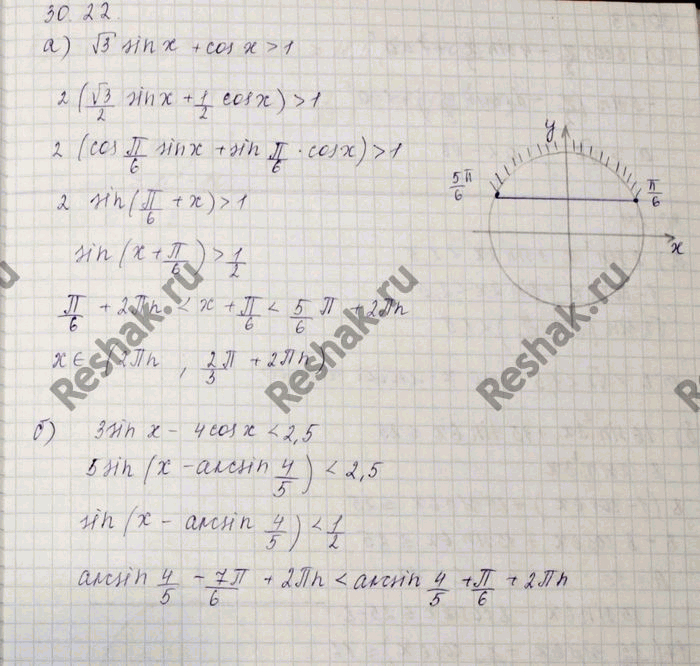 30.22.
а) √3 sin x + cos x > 1
2 (√3/2 sin x + 1/2 cos x) > 1
2 (cos π/6 sin x + sin π/6 · cos x) > 1
2 sin(π/6 + x) > 1
sin(x + π/6) > 1/2
π/6 + 2πn < x + π/6 < 5/6 π + 2πn
x ∈ (2πn, 2/3 π + 2πn)
y
5/6 π
π/6
x
б) 3 sin x - 4 cos x < 2,5
5 sin(x - arcsin 4/5) < 2,5
sin(x - arcsin 4/5) < 1/2
arcsin 4/5 - 7π/6 + 2πn < arcsin 4/5 + π/6 + 2πn
Reshak.ru
Reshak.ru
Reshak.ru
Reshak.ru